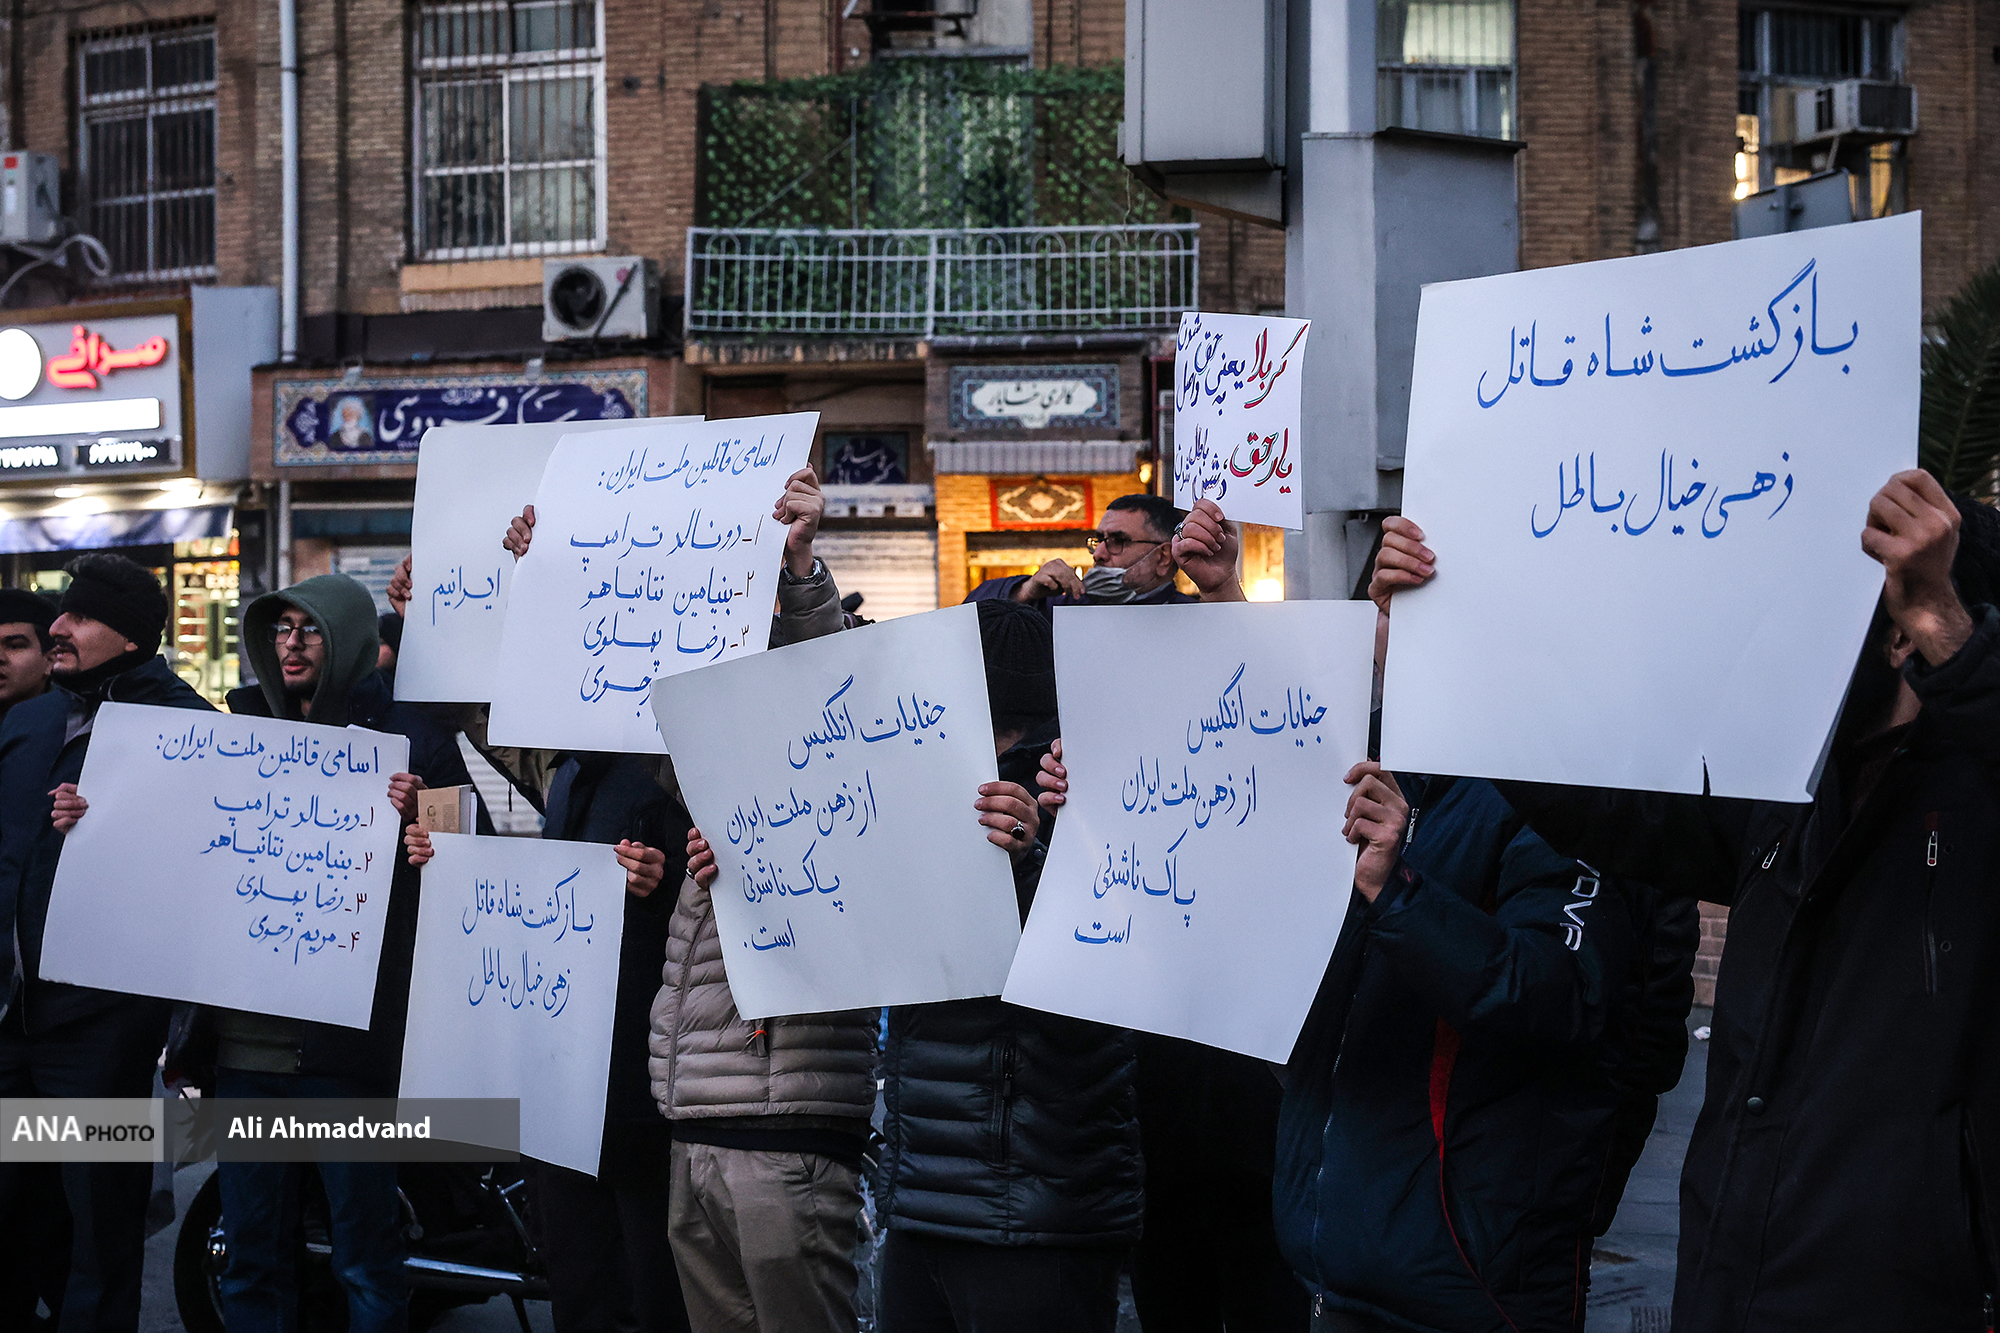 صرافی
فردوسی
ایرانیم
اسامی قاتلین ملت ایران:
۱- دونالد ترامپ
۲- بنیامین نتانیاهو
۳- رضا پهلوی
رجوی
کربلا یعنی حق
واصل
یار حق،
باطل
دشمن
بازگشت شاه قاتل
زهی خیال باطل
جنایات انگلیس
از ذهن ملت ایران
پاک ناشدنی
است.
جنایات انگلیس
از ذهن ملت ایران
پاک ناشدنی
است
اسامی قاتلین ملت ایران:
۱- دونالد ترامپ
۲- بنیامین نتانیاهو
۳- رضا پهلوی
۴- مریم رجوی
بازگشت شاه قاتل
زهی خیال باطل
ANA PHOTO
Ali Ahmadvand